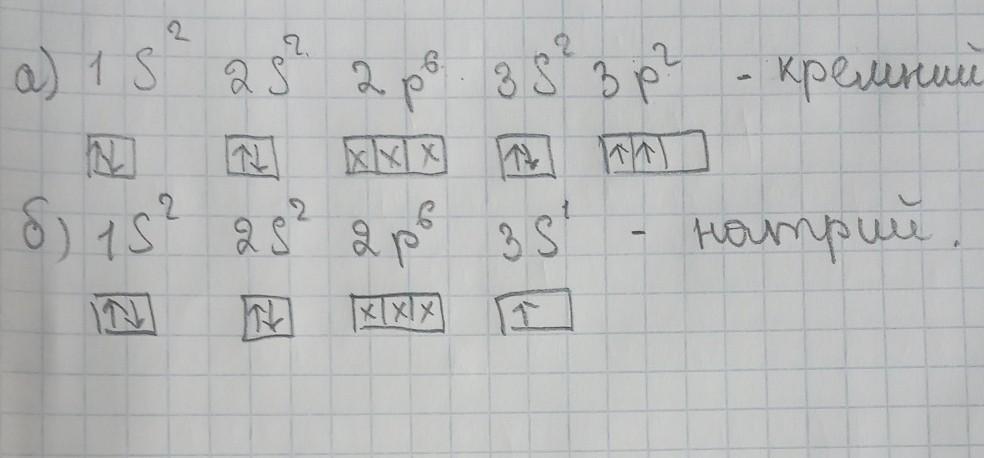 а) 1S² 2S² 2p⁶ 3S² 3p² - кремний
↑↓ ↑↓ x x x ↑↓ ↑ ↑
б) 1S² 2S² 2p⁶ 3S¹ - натрий.
↑↓ ↑↓ x x x ↑